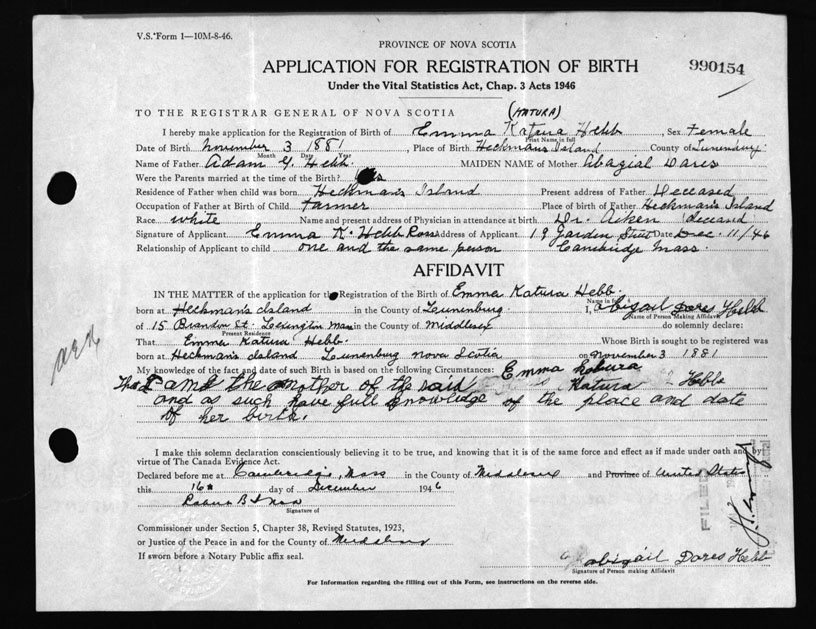 V.S. Form 1—10M-8-46.
PROVINCE OF NOVA SCOTIA
APPLICATION FOR REGISTRATION OF BIRTH
990154
Under the Vital Statistics Act, Chap. 3 Acts 1946
TO THE REGISTRAR GENERAL OF NOVA SCOTIA (KATURA)
I hereby make application for the Registration of Birth of Emma Katura Hebb, Sex Female
Print Name in full
Date of Birth November 3 1881, Place of Birth Heckman's Island County of Lunenburg
Month Day Year
Name of Father Adam G. Hebb. MAIDEN NAME of Mother Abagial Dares
Were the Parents married at the time of the Birth? Yes
Residence of Father when child was born Heckman's Island Present address of Father Deceased
Occupation of Father at Birth of Child Farmer Place of birth of Father Heckman's Island
Race white Name and present address of Physician in attendance at birth Dr. Aiken deceand
Signature of Applicant Emma K. Hebb Ross Address of Applicant 19 Garden Street Date Dec. 11/46
Relationship of Applicant to child one and the same person Cambridge Mass.
AFFIDAVIT
IN THE MATTER of the application for the Registration of the Birth of Emma Katura Hebb.
Name in full
born at Heckman's Island in the County of Lunenburg. I, Abigail Dares Hebb
Name of Person Making Affidavit
of 15 Brandon St. Lexington Mass in the County of Middlesex do solemnly declare:
Present Residence
That Emma Katura Hebb. Whose Birth is sought to be registered was
born at Heckman's Island Lunenburg Nova Scotia on November 3 1881
My knowledge of the fact and date of such Birth is based on the following Circumstances: Emma
That I am the mother of the said Katura Hebb
and as such have full knowledge of the place and date
of her birth.
I make this solemn declaration conscientiously believing it to be true, and knowing that it is of the same force and effect as if made under oath and by
virtue of The Canada Evidence Act.
Declared before me at Cambridge, Mass in the County of Middlesex and Province of United States
this 16th day of December 1946
Signature of
Commissioner under Section 5, Chapter 38, Revised Statutes, 1923,
or Justice of the Peace in and for the County of Middlesex
If sworn before a Notary Public affix seal.
FILED
Abigail Dares Hebb
Signature of Person making Affidavit
For Information regarding the filling out of this Form, see instructions on the reverse side.